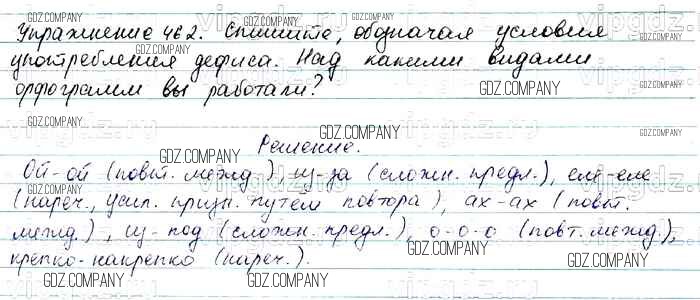 Упражнение 462. Спишите, обозначая условия
употребления дефиса. Над какими видами
орфограмм вы работали?
Решение.
Ой-ой (повт. межд.), из-за (сложн. предл.), еле-еле
(нареч., усил. призн. путём повтора), ах-ах (повт.
межд.), из-под (сложн. предл.), о-о-о (повт. межд.),
крепко-накрепко (нареч.).
GDZ.COMPANY
vipgdz.ru